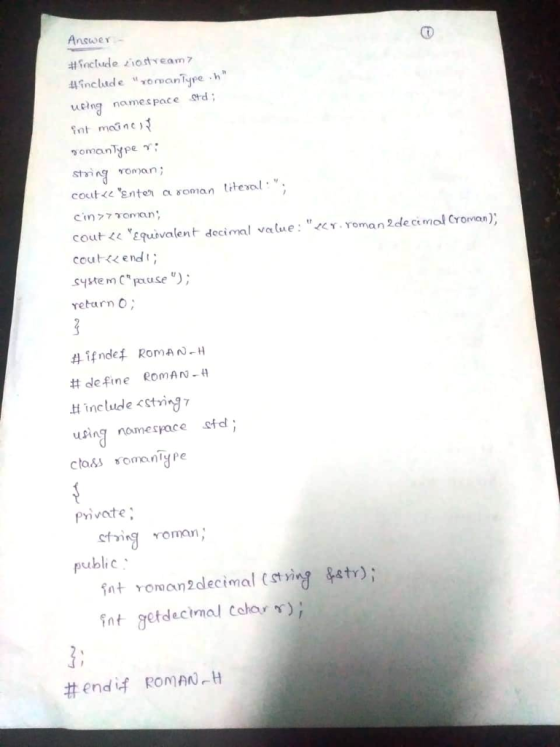 Answer:-
①
#include <iostream>
#include "romanType.h"
using namespace std;
int main(){
romanType r;
string roman;
cout<<"Enter a roman literal:";
cin>>roman;
cout << "Equivalent decimal value: "<<r.roman2decimal(roman);
cout<<endl;
system("pause");
return 0;
}
#ifndef ROMAN-H
#define ROMAN-H
#include<string>
using namespace std;
class romanType
{
private;
string roman;
public:
int roman2decimal(string &str);
int getdecimal(char r);
};
#endif ROMAN-H